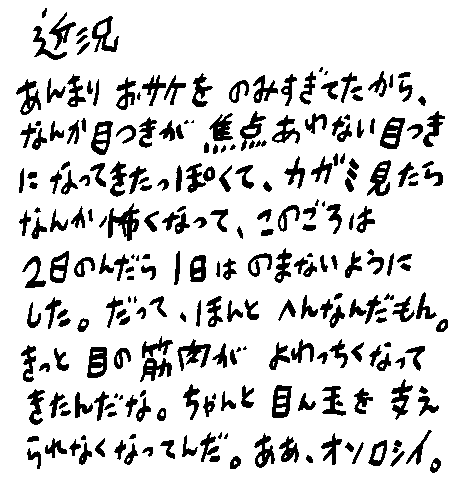 近況
あんまり おサケを のみすぎてたから、
なんか目つきが 焦点あわない目つき
に なってきたっぽくて、カガミ見たら
なんか怖くなって、このごろは
2日のんだら 1日は のまないように
した。だって、ほんと へんなんだもん。
きっと 目の筋肉が よわっちくなって
きたんだな。ちゃんと 目ん玉を 支え
られなくなってんだ。ああ、オソロシイ。